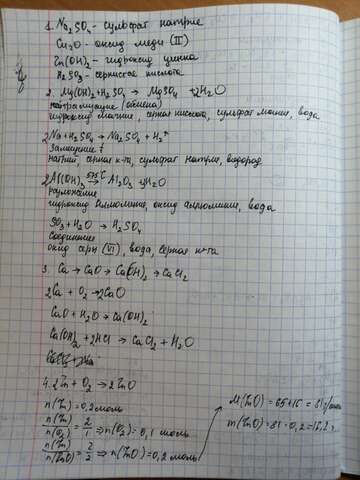 1. Na₂SO₄ - сульфат натрия
Cu₂O - оксид меди (II)
Zn(OH)₂ - гидроксид цинка
H₂SO₃ - сернистая кислота
2. Mg(OH)₂ + H₂SO₄ → MgSO₄ + 2H₂O
нейтрализация (обмена)
гидроксид магния, серная кислота, сульфат магния, вода
2Na + H₂SO₄ → Na₂SO₄ + H₂↑
Замещение
натрий, серная к-та, сульфат натрия, водород
2Al(OH)₃ 575°C→ Al₂O₃ + 3H₂O
разложение
гидроксид алюминия, оксид алюминия, вода
SO₃ + H₂O → H₂SO₄
Соединение
оксид серы (VI), вода, серная к-та
3. Ca → CaO → Ca(OH)₂ → CaCl₂
2Ca + O₂ → 2CaO
CaO + H₂O → Ca(OH)₂
Ca(OH)₂ + 2HCl → CaCl₂ + H₂O
4. 2Zn + O₂ → 2ZnO
n(Zn) = 0,2 моль
n(Zn)/n(O₂) = 2/1 ⇒ n(O₂) = 0,1 моль
n(Zn)/n(ZnO) = 2/2 ⇒ n(ZnO) = 0,2 моль
M(ZnO) = 65 + 16 = 81 г/моль
m(ZnO) = 81 · 0,2 = 16,2 г